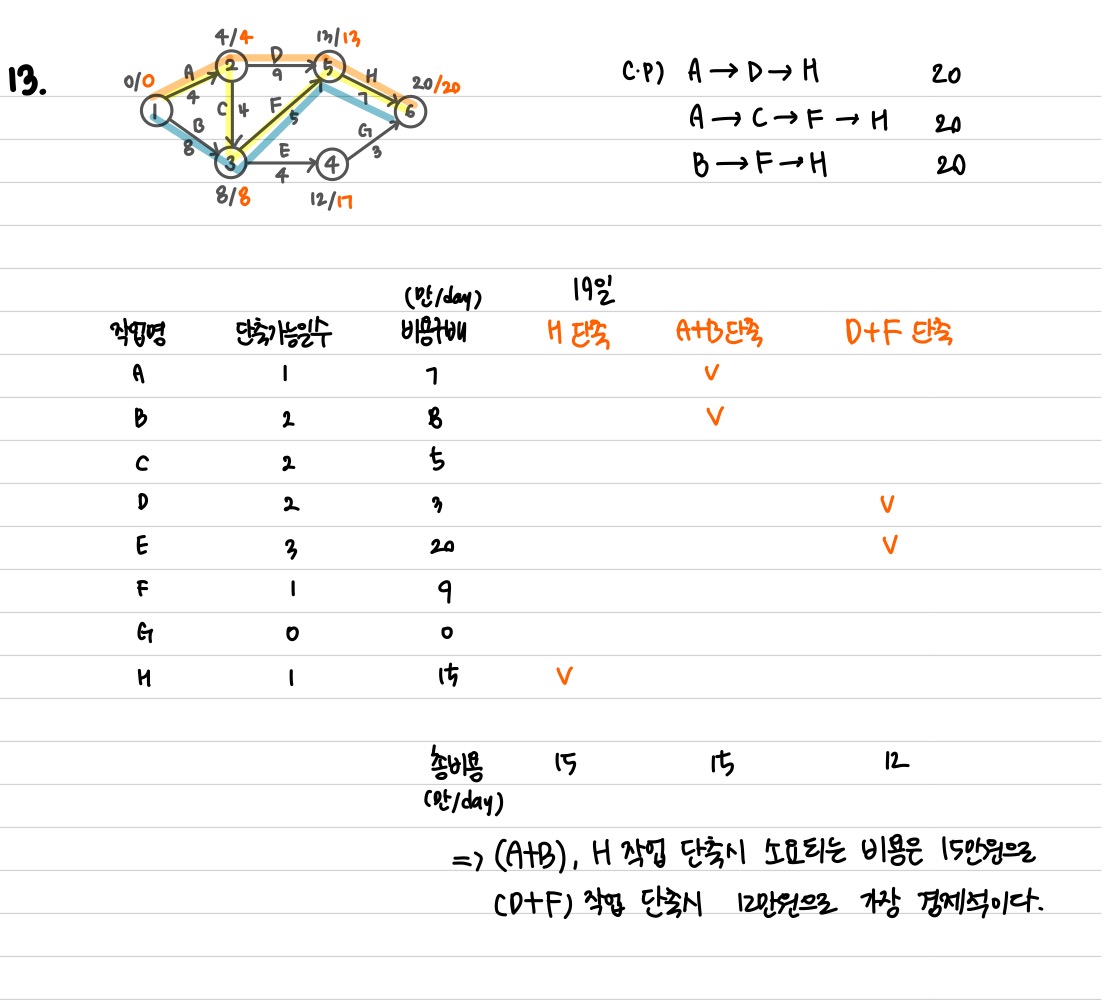 13.
4/4 13/13
0/0 20/20
1 2 3 4 5 6
A 4
B 8
C 4
D 9
E 4
F 5
G 3
H 7
8/8 12/17
C.P) A → D → H 20
A → C → F → H 20
B → F → H 20
(만/day) 19일
작업명 단축가능일수 비용구배 H 단축 A+B단축 D+F 단축
A 1 7 V
B 2 8 V
C 2 5
D 2 3 V
E 3 20 V
F 1 9
G 0 0
H 1 15 V
총비용 15 15 12
(만/day)
=> (A+B), H 작업 단축시 소요되는 비용은 15만원으로
(D+F) 작업 단축시 12만원으로 가장 경제적이다.